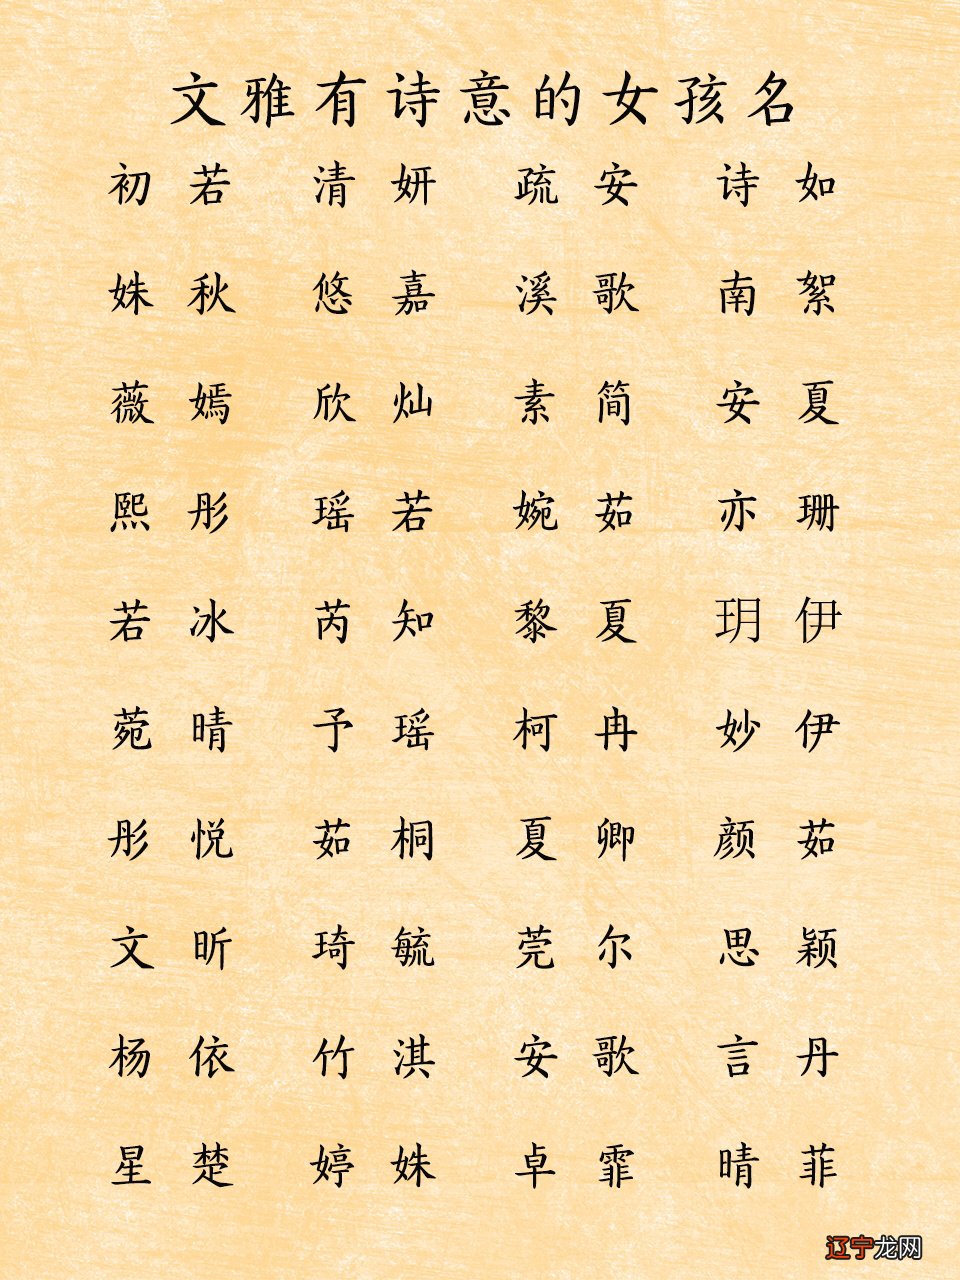 文雅有诗意的女孩名
初若 清妍 疏安 诗如
姝秋 悠嘉 溪歌 南絮
薇嫣 欣灿 素简 安夏
熙彤 瑶若 婉茹 亦珊
若冰 芮知 黎夏 玥伊
菀晴 予瑶 柯冉 妙伊
彤悦 茹桐 夏卿 颜茹
文昕 琦毓 莞尔 思颖
杨依 竹淇 安歌 言丹
星楚 婷姝 卓霏 晴菲
辽宁龙网